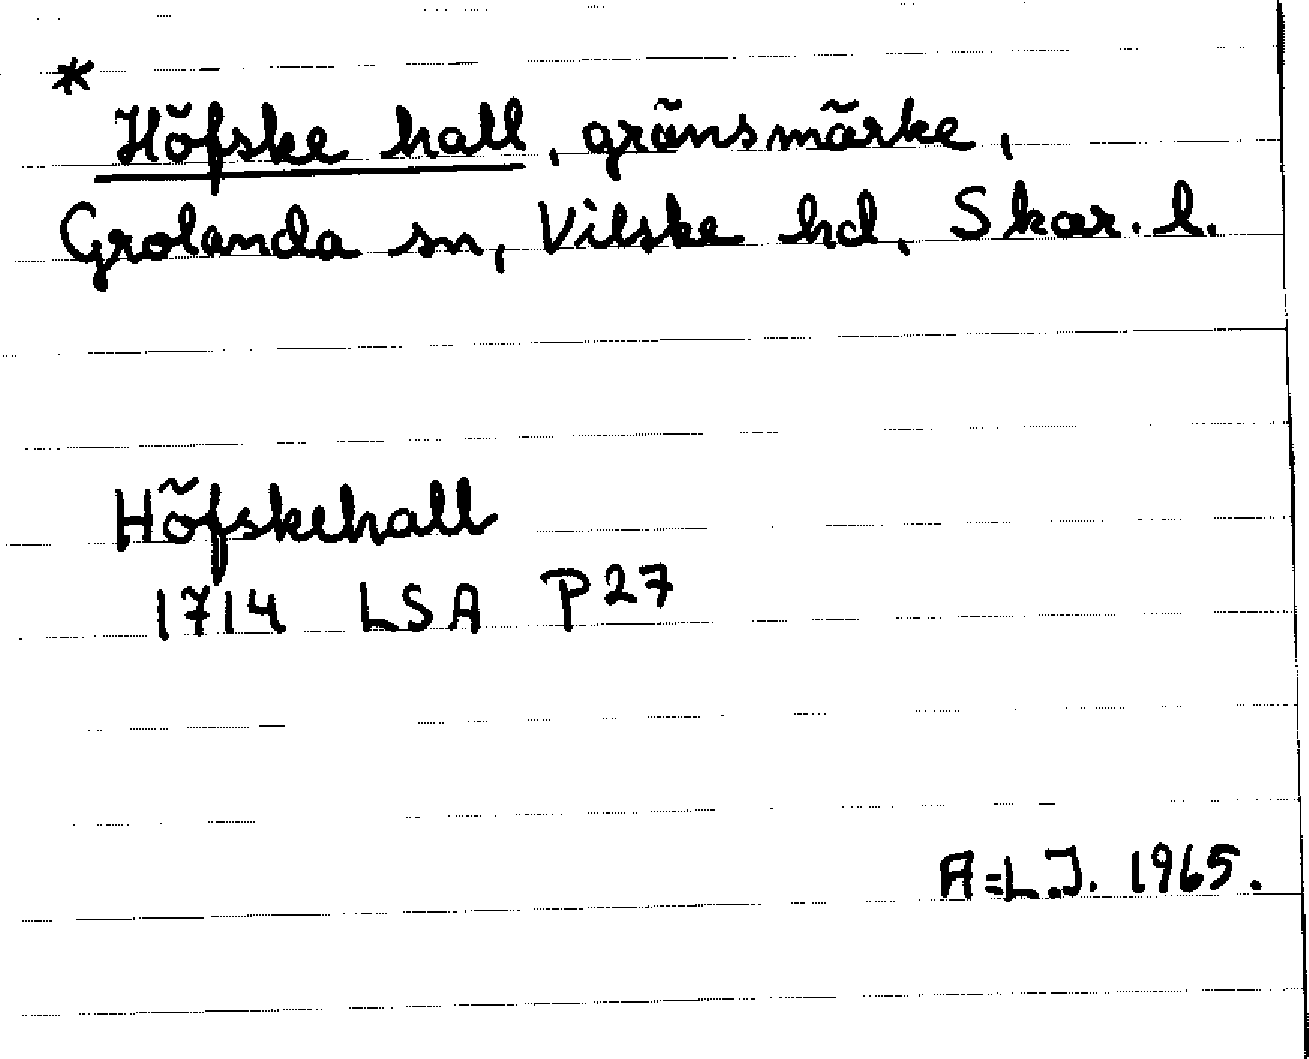 *
Höfske hall, gränsmärke,
Grolanda sn, Vilske hd, Skar. l.
Höfskehall
1714 LSA P27
A=L.J. 1965.